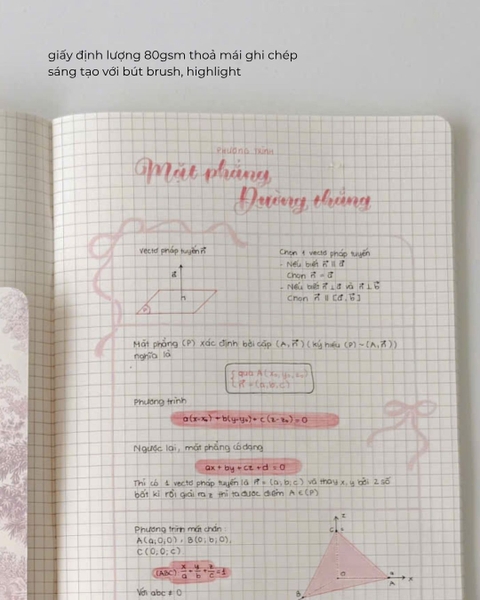 giấy định lượng 80gsm thoả mái ghi chép
sáng tạo với bút brush, highlight
PHƯƠNG TRÌNH
Mặt phẳng
Đường thẳng
Vectơ pháp tuyến n⃗
n⃗
P
Chọn 1 vectơ pháp tuyến
- Nếu biết n⃗ ∥ a⃗
Chọn n⃗ = a⃗
- Nếu biết n⃗ ⊥ a⃗ và n⃗ ⊥ b⃗
Chọn n⃗ ∥ [a⃗, b⃗]
Mặt phẳng (P) xác định bởi cặp (A, n⃗) (ký hiệu (P) ~ (A, n⃗))
nghĩa là
{ qua A(x₀, y₀, z₀)
n⃗ = (a; b; c)
Phương trình
a(x-x₀) + b(y-y₀) + c(z-z₀) = 0
Ngược lại, mặt phẳng có dạng
ax + by + cz + d = 0
Thì có 1 vectơ pháp tuyến là n⃗ = (a; b; c) và thay x, y bởi 2 số
bất kì rồi giải ra z thì ta được điểm A ∈ (P)
Phương trình mặt chắn
A(a; 0; 0), B(0; b; 0),
C(0; 0; c)
(ABC): x/a + y/b + z/c = 1
Với abc ≠ 0
z
C
c
O
a
A
x
B